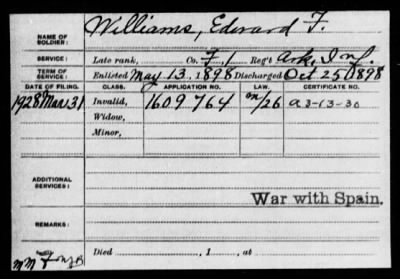 NAME OF SOLDIER: Williams, Edward F.
SERVICE: Late rank, Co. F, 1 Reg't Ark. Inf.
TERM OF SERVICE: Enlisted May 13, 1898 Discharged Oct 25, 1898
DATE OF FILING. CLASS. APPLICATION NO. LAW. CERTIFICATE NO.
1928 Mar 31 Invalid, 1609764 /26 a3-13-30
Widow,
Minor,
ADDITIONAL SERVICES:
War with Spain.
REMARKS:
Died , 1 , at